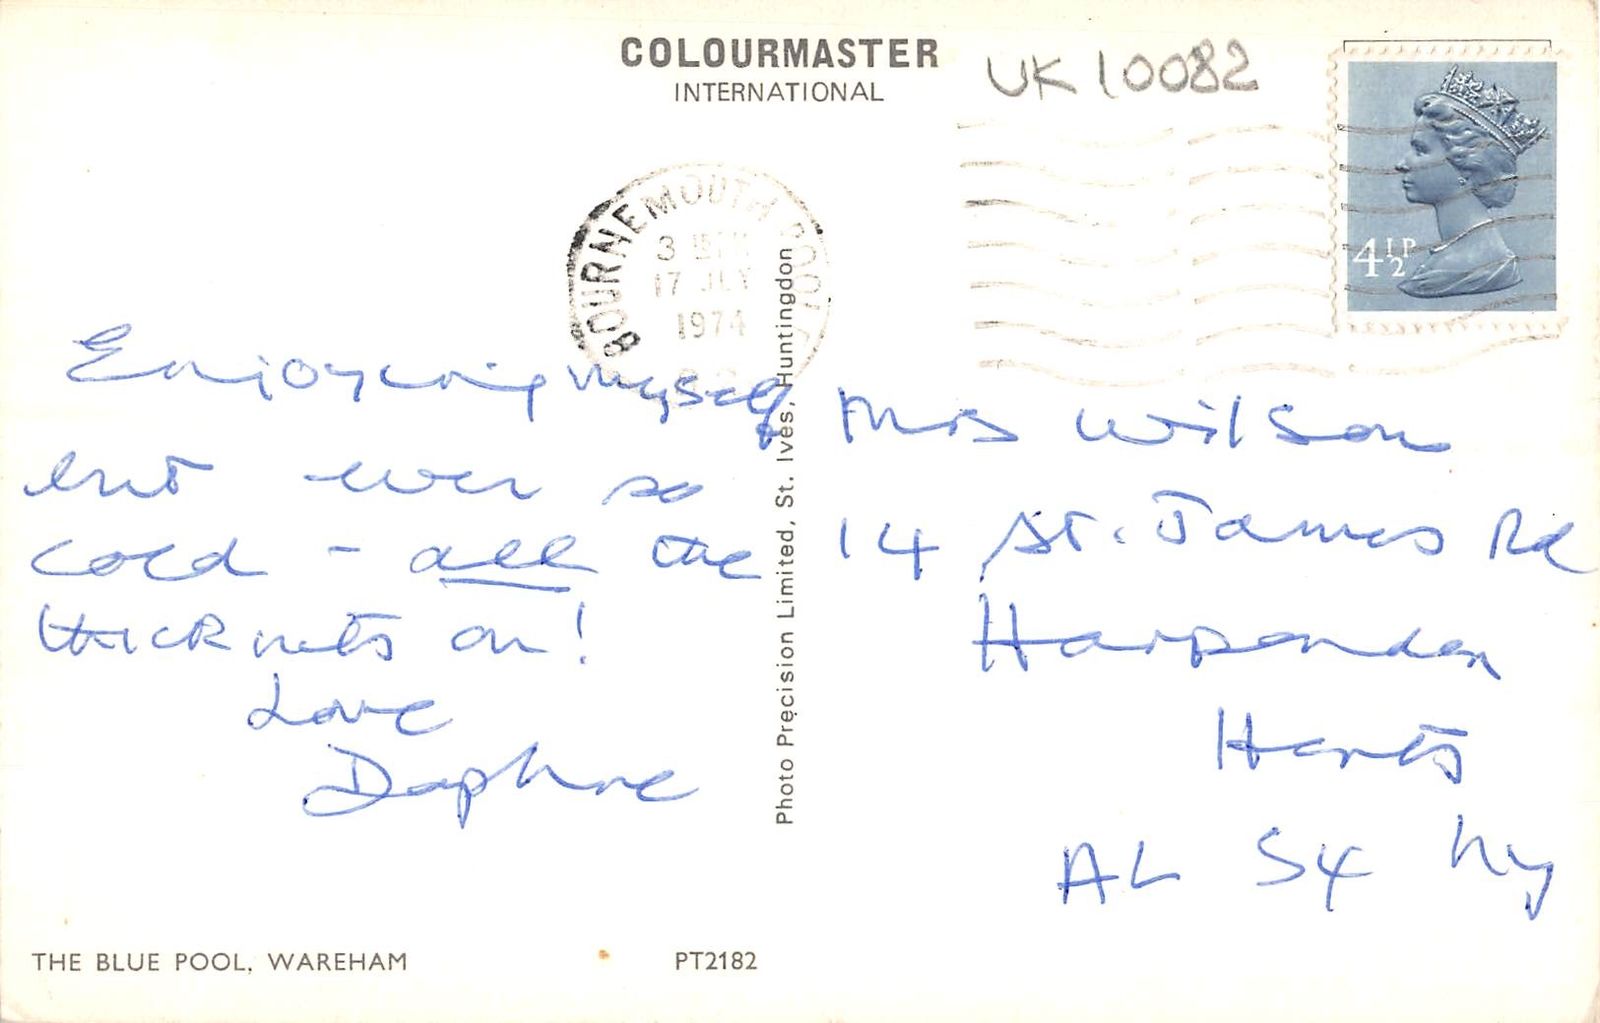 COLOURMASTER
INTERNATIONAL
UK 10082
4½P
BOURNEMOUTH POOLE
3 15PM
17 JLY
1974
Enjoying myself
but ever so
cold - all the
thick nets on!
Love
Daphne
Mrs Wilson
14 St. James Rd
Harpenden
Herts
AL 54
Photo Precision Limited, St. Ives, Huntingdon
THE BLUE POOL, WAREHAM
PT2182